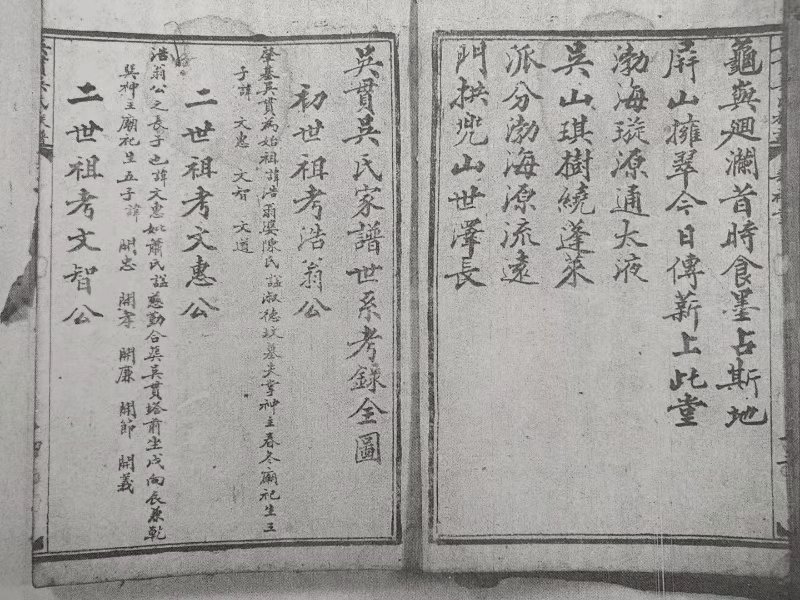 龜輿迴瀾昔時食墨占斯地
屏山擁翠今日傳薪上此堂
渤海璇源通太液
吳山琪樹繞蓬萊
派分渤海源流遠
門拱兜山世澤長
吳貫吳氏家譜世系考錄全圖
初世祖考浩翁公
發基吳貫為始祖諱浩翁婆陳氏諡淑德坟墓失掌神主春冬廟祀生三
子諱 文惠 文智 文道
二世祖考文惠公
浩翁公之長子也諱文惠妣蕭氏諡慈勤合葬吳貫塔前坐戌向辰兼乾
巽神主廟祀生五子諱 開忠 開孝 開廉 開節 開義
二世祖考文智公